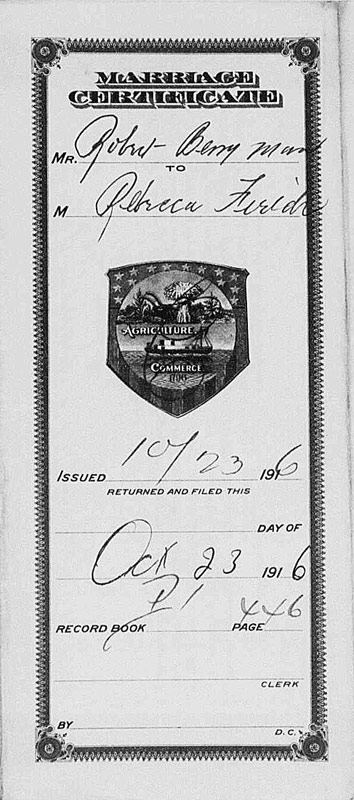 MARRIAGE
CERTIFICATE
MR. Robert Berryman
TO
M Rebecca
AGRICULTURE
COMMERCE
1796
ISSUED 10/23 1916
RETURNED AND FILED THIS
DAY OF
Oct 23 1916
RECORD BOOK PAGE 446
CLERK
BY D.C.